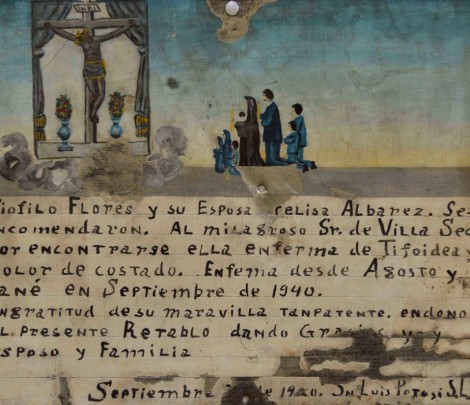 INRI
iofilo Flores y su Esposa relisa Albarez. Se
ncomendaron. Al milagroso Sr. de Villa Sec
or encontrarse ella enferma de Tifoidea y
olor de costado. Enferma desde Agosto y
ané en Septiembre de 1940.
ngratitud de su maravilla tanpatente. endono
l presente Retablo dando Gracias y
sposo y Familia
Septiembre de 1940. Sn Luis Potosi S.L.